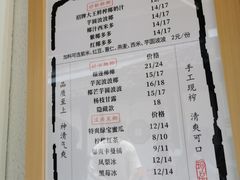 招牌大王鲜榨椰奶汁 14/17
芋圆波波椰 14/17
椰汁西米多 14/17
紫椰多多 14/17
红椰多多 14/17
加料可选紫米、红豆、薏仁、燕麦、西米、芋圆波波 2元/份
价格
榴莲椰椰 21/24
芋泥波波椰 15/17
椰芒芋圆波波 16/18
杨枝甘露 16/18
隐藏款 16/18
价格
特爽绿宝蜜瓜 12/14
柠檬红茶 12/14
爆爽卡曼橘 12/14
凤梨冰 12/14
黑莓冰 12/14
品质至上 神清气爽
手工现榨 清爽可口